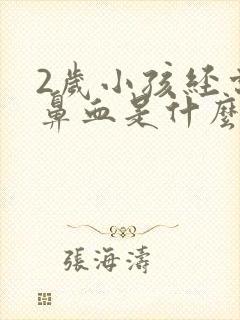 2歲小孩經
鼻血是什麼
張海濤